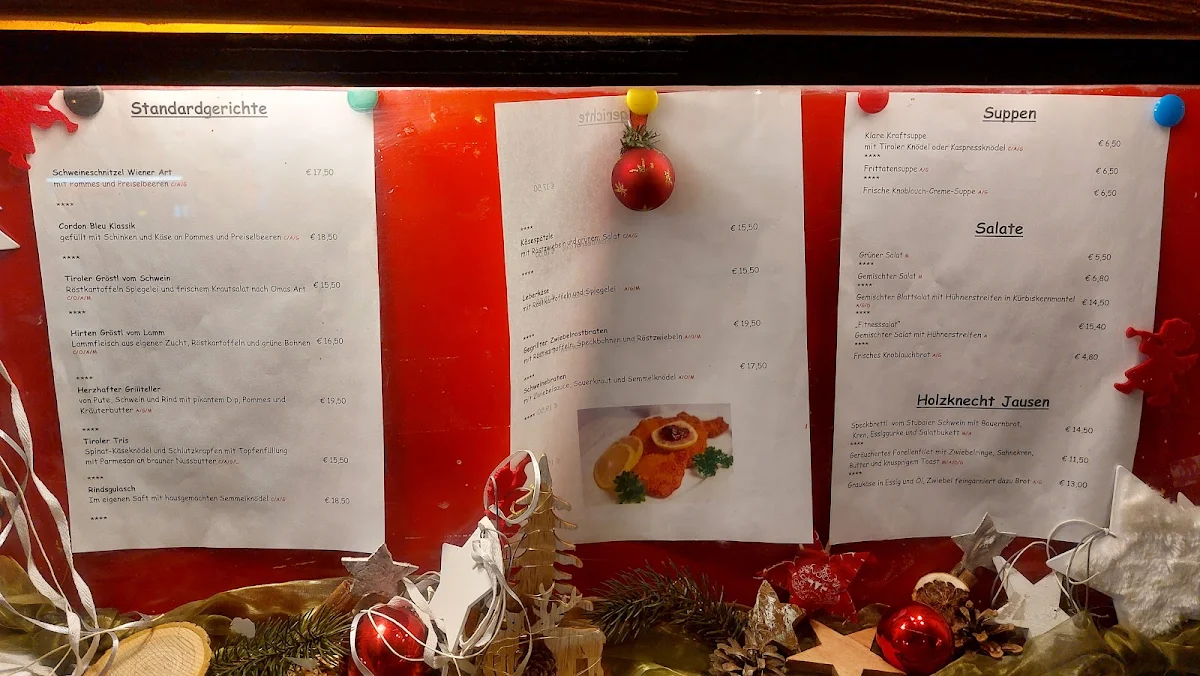 Standardgerichte
Schweineschnitzel Wiener Art € 17,50
mit Pommes und Preiselbeeren C/A/G
****
Cordon Bleu Klassik
gefüllt mit Schinken und Käse an Pommes und Preiselbeeren C/A/G € 18,50
****
Tiroler Gröstl vom Schwein
Röstkartoffeln Spiegelei und frischem Krautsalat nach Omas Art € 15,50
C/O/A/M
****
Hirten Gröstl vom Lamm
Lammfleisch aus eigener Zucht, Röstkartoffeln und grüne Bohnen € 16,50
C/O/A/M
****
Herzhafter Grillteller
von Pute, Schwein und Rind mit pikantem Dip, Pommes und € 19,50
Kräuterbutter A/G/M
****
Tiroler Tris
Spinat-Käseknödel und Schlutzkrapfen mit Topfenfüllung
mit Parmesan an brauner Nussbutter € 15,50
****
Rindsgulasch
Im eigenen Saft mit hausgemachten Semmelknödel C/A/G € 18,50
****
****
Käsespätzle € 15,50
mit Röstzwiebeln und grünem Salat C/A/G
****
Leberkäse € 15,50
mit Röstkartoffeln und Spiegelei A/G/M
****
Gegrillter Zwiebelrostbraten € 19,50
mit Röstkartoffeln, Speckbohnen und Röstzwiebeln A/O/M
****
Schweinebraten € 17,50
mit Zwiebelsauce, Sauerkraut und Semmelknödel A/O/M
****
Suppen
Klare Kraftsuppe
mit Tiroler Knödel oder Kaspressknödel C/A/G € 6,50
****
Frittatensuppe A/G € 6,50
****
Frische Knoblauch-Creme-Suppe A/G € 6,50
Salate
Grüner Salat M € 5,50
****
Gemischter Salat M € 6,80
****
Gemischter Blattsalat mit Hühnerstreifen in Kürbiskernmantel € 14,50
****
„Fitnesssalat“ € 15,40
Gemischter Salat mit Hühnerstreifen
****
Frisches Knoblauchbrot A/G € 4,80
Holzknecht Jausen
Speckbrettl vom Stubaier Schwein mit Bauernbrot,
Kren, Essiggurke und Salatbukett € 14,50
****
Geräuchertes Forellenfilet mit Zwiebelringe, Sahnekren,
Butter und knusprigem Toast € 11,50
****
Graukäse in Essig und Öl, Zwiebel feingarniert dazu Brot A/G € 13,00